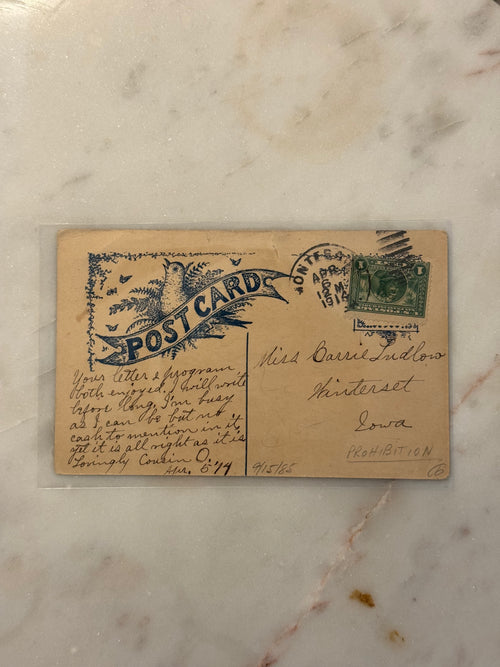 POST CARD
APR
6
M
1914
1
Your letter & program
both enjoyed. I will write
before long, I'm busy
as I can be but no
cash to mention in it,
yet it is all right as it is
Lovingly Cousin O.
Apr. 5 '14
Miss Carrie Ludlow
Winterset
Iowa
PROHIBITION
9/15/85